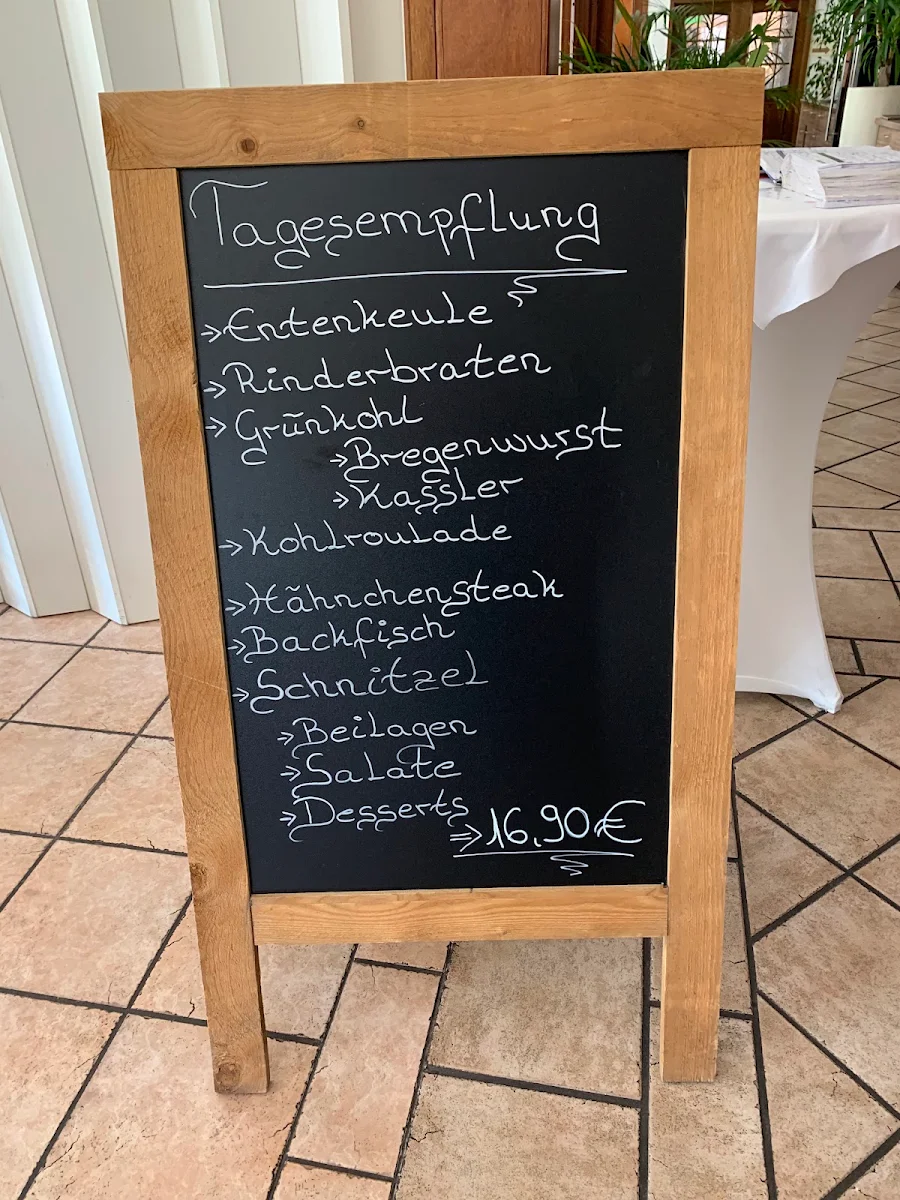 Tagesempflung
→Entenkeule
→Rinderbraten
→Grünkohl
→Bregenwurst
→Kassler
→Kohlroulade
→Hähnchensteak
→Backfisch
→Schnitzel
→Beilagen
→Salate
→Desserts
⇒16,90€